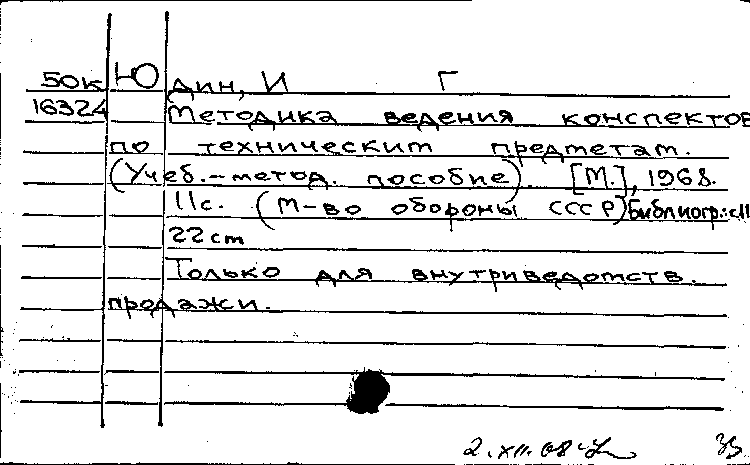 50к Юдин, И Г
16324 Методика ведения конспектов
по техническим предметам.
(Учеб.-метод. пособие). [М.], 1968.
11с. (М-во обороны СССР) Библиогр.: с11
22 cm
Только для внутриведомств.
продажи.
2.XII.68